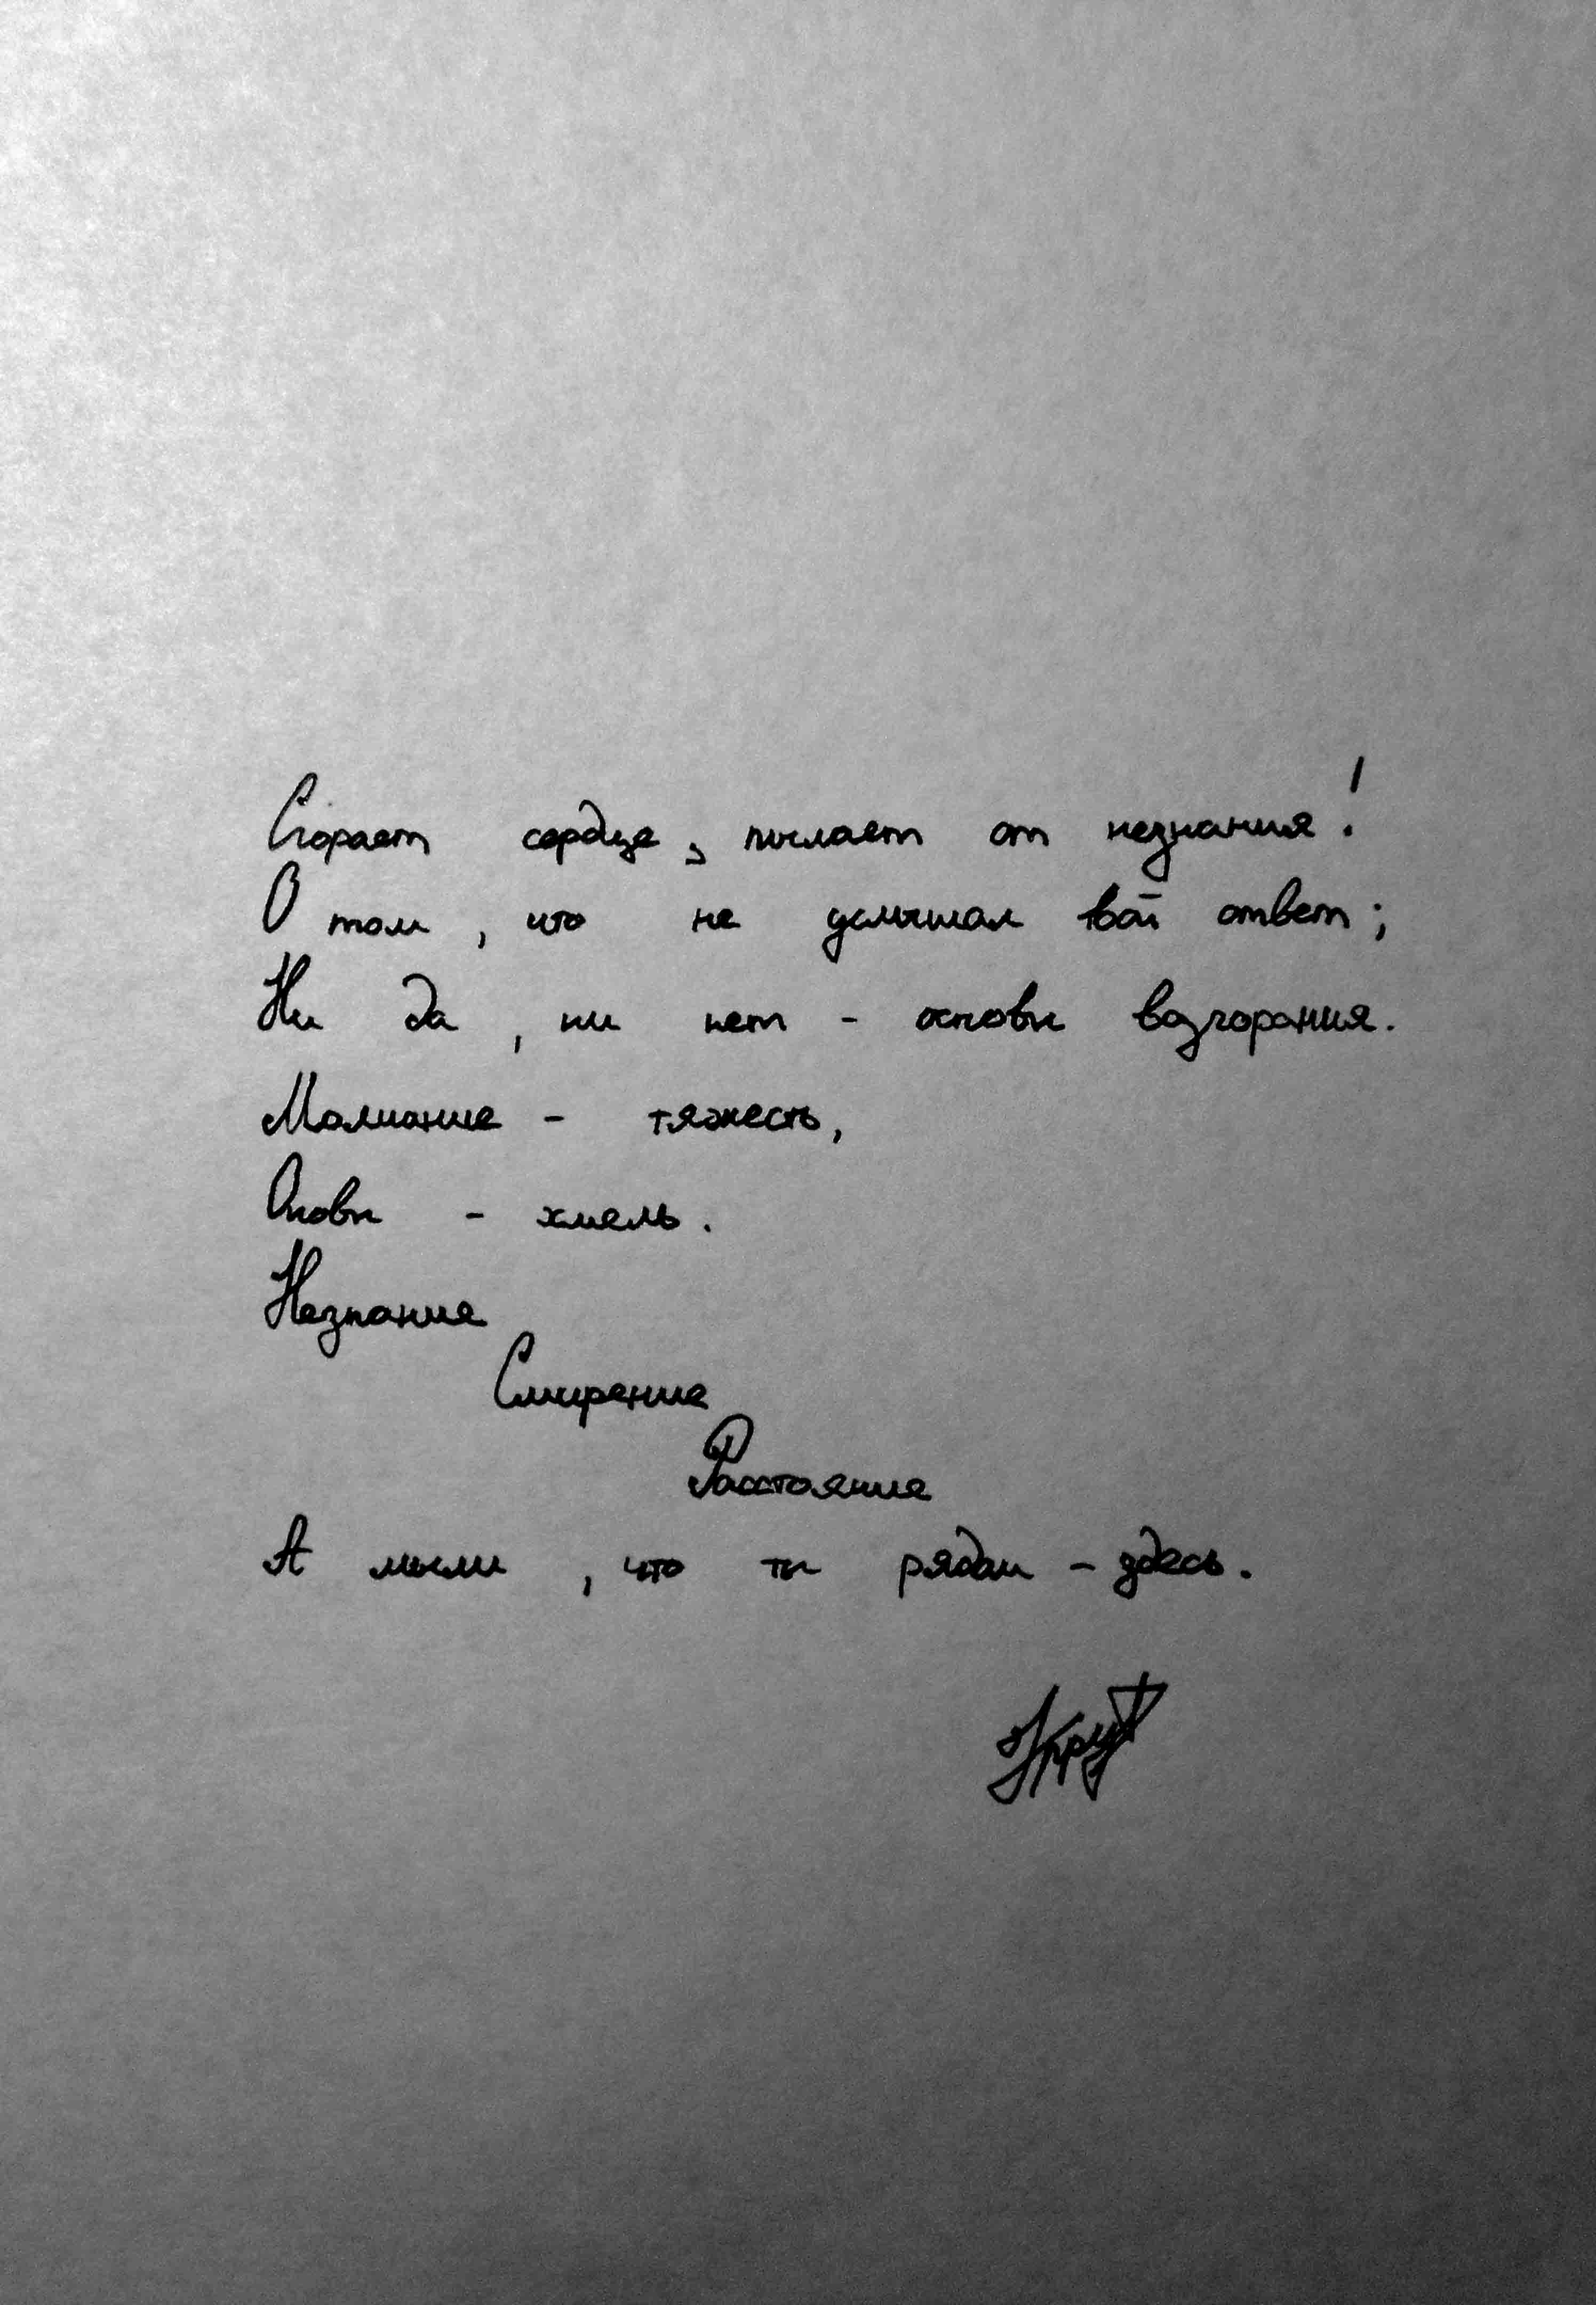 Сгорает сердце, пылает от незнания!
О том, что не услышал твой ответ;
Ни да, ни нет - основы возгорания.
Молчание - тяжесть,
Оковы - хмель.
Незнание
Смирение
Расстояние
А мысли, что ты рядом - здесь.